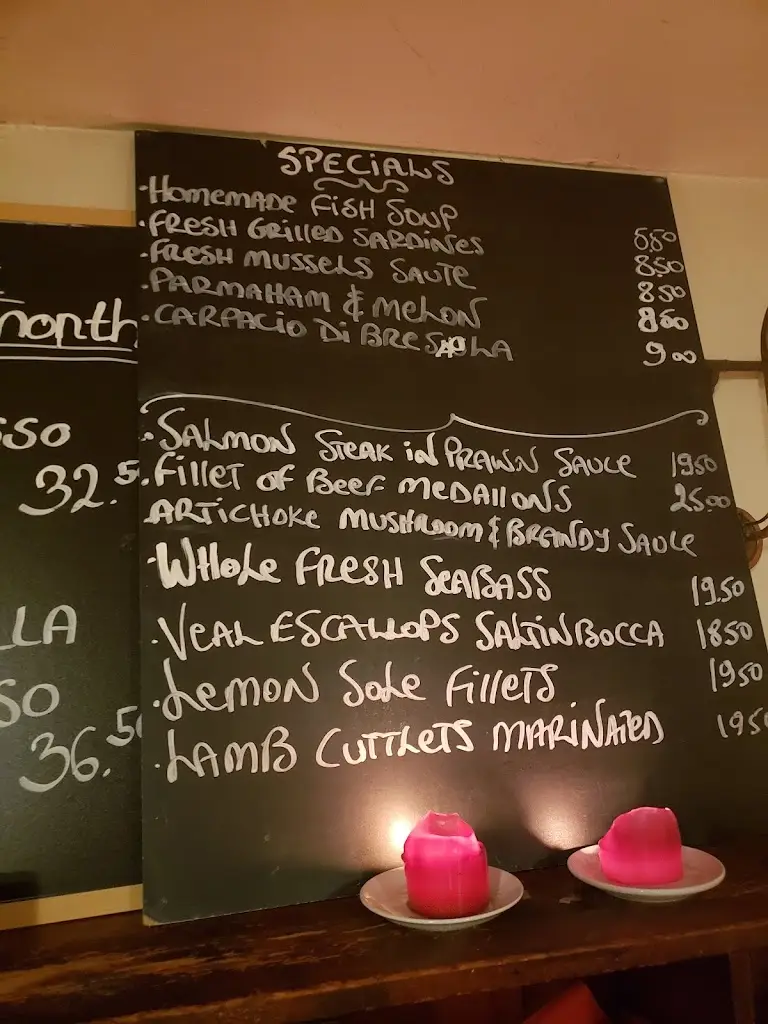 SPECiALS
·HOMEMADE FiSH SOUP 6.50
·FRESH GRILLED SARDINES 8.50
·FRESH MUSSELS SAUTE 8.50
·PARMAHAM & MELON 8.50
·CARPACIO Di BRESAOLA 9.00
·SALMON STEAK iN PRAWN SAUCE 19.50
·FILLET OF BEEF MEDALLONS 25.00
ARTICHOKE MUSHROOM & BRANDY SAUCE
·WHOLE FRESH SEABASS 19.50
·VEAL ESCALLOPS SALTINBOCCA 18.50
·LEMON SOLE FILLETS 19.50
·LAMB CUTTLETS MARINATED 19.50
month
32.50
LLA
36.50